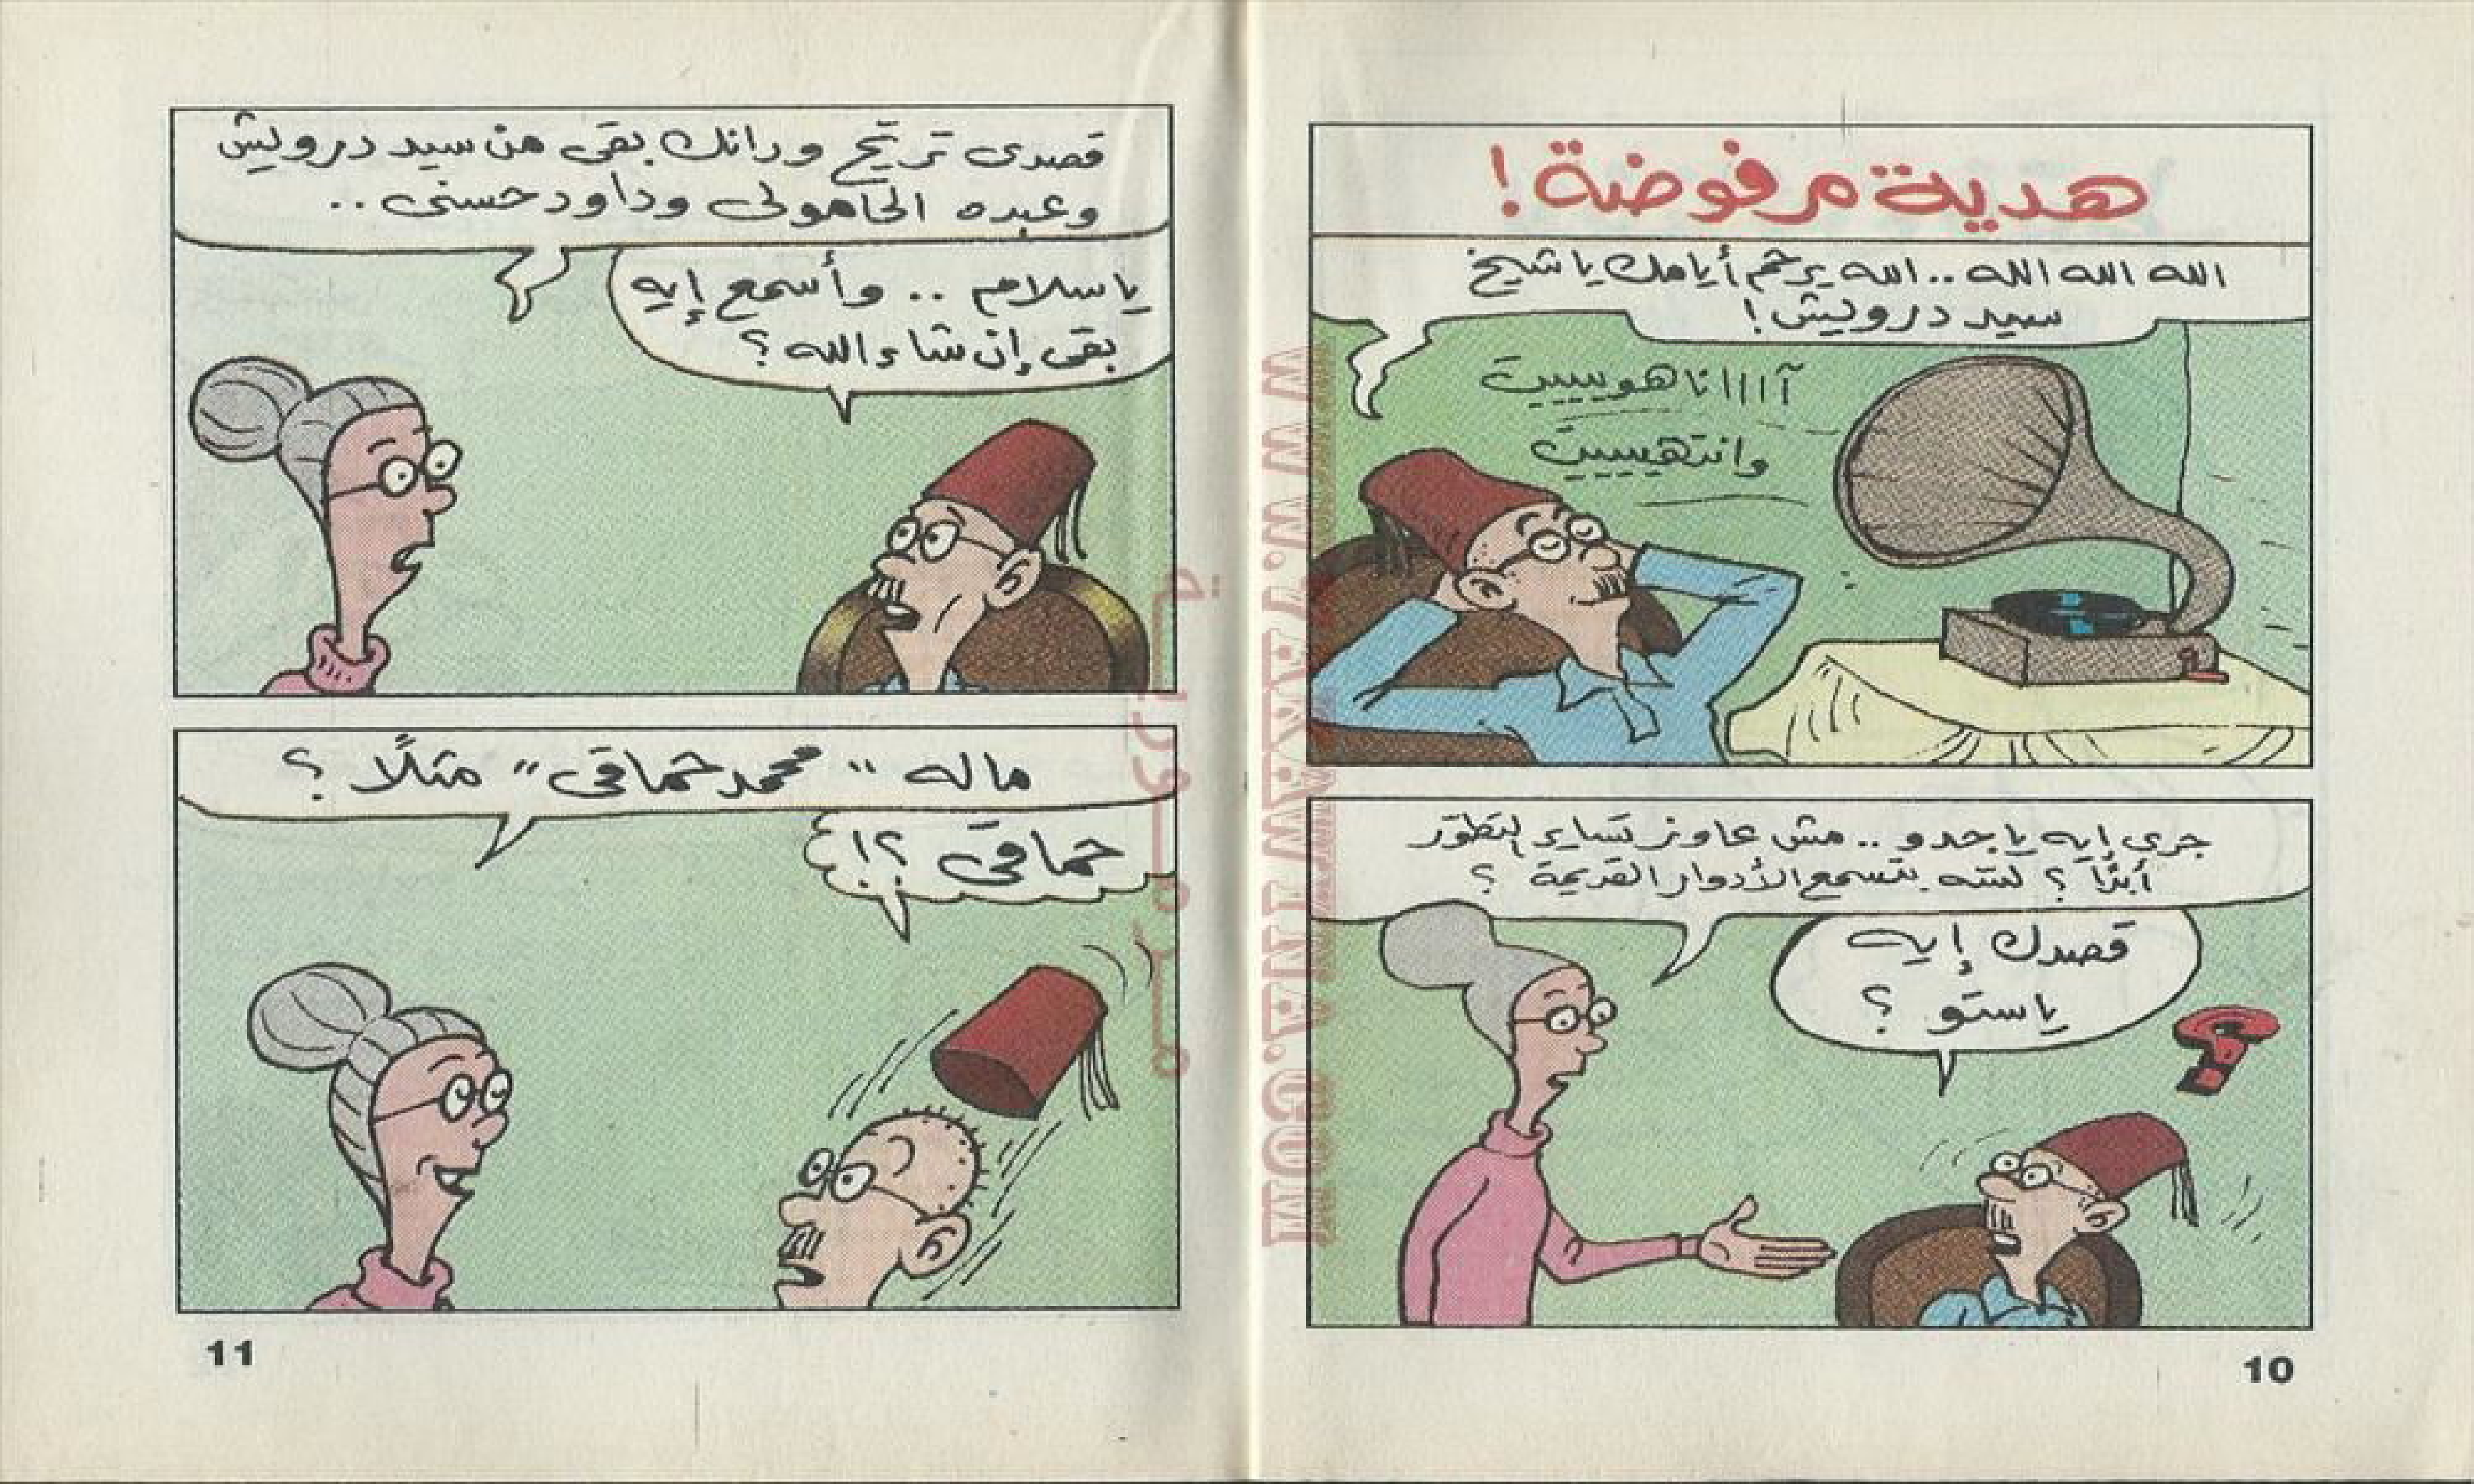 هدية مرفوضة!
الله الله الله .. الله يرحم أيامك يا شيخ
سيد درويش!
آااانا هويييت
وانتهيييت
جرى إيه يا جدو .. مش عاوز تساير التطور
أبدًا ؟ لسّه بتسمع الأدوار القديمة ؟
قصدك إيه
يا ستو ؟
؟
10
قصدى تريّح ودانك بقى من سيد درويش
وعبده الحامولى وداود حسنى ..
يا سلام .. وأسمع إيه
بقى إن شاء الله ؟
ماله "محمد حماقى" مثلًا ؟
حماقى ؟!
11
WWW.YAKEWENEWA.COM